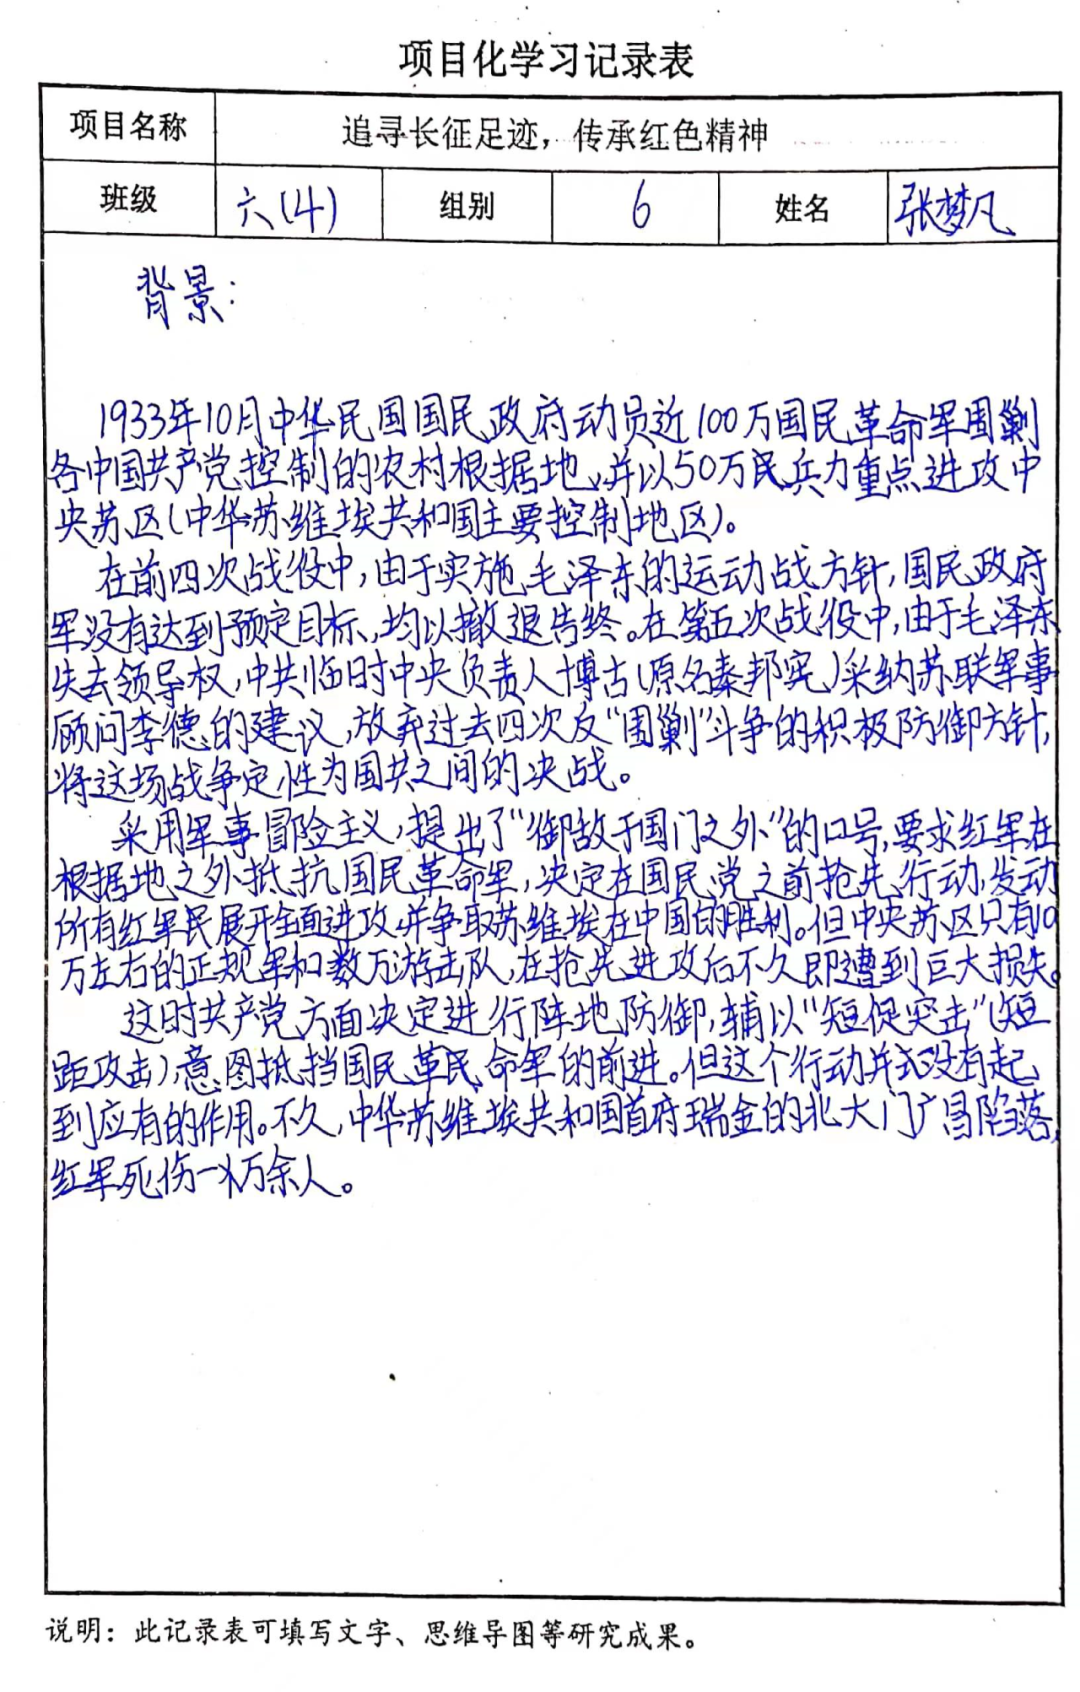 项目化学习记录表
项目名称 追寻长征足迹，传承红色精神
班级 六(4) 组别 6 姓名 张梦凡
背景：
1933年10月中华民国国民政府动员近100万国民革命军围剿
各中国共产党控制的农村根据地，并以50万民兵力重点进攻中
央苏区(中华苏维埃共和国主要控制地区)。
在前四次战役中，由于实施毛泽东的运动战方针，国民政府
军没有达到预定目标，均以撤退告终。在第五次战役中，由于毛泽东
失去领导权，中共临时中央负责人博古(原名秦邦宪)采纳苏联军事
顾问李德的建议，放弃过去四次反“围剿”斗争的积极防御方针，
将这场战争定性为国共之间的决战。
采用军事冒险主义，提出了“御敌于国门之外”的口号，要求红军在
根据地之外抵抗国民革命军，决定在国民党之前抢先行动，发动
所有红军民展开全面进攻，并争取苏维埃在中国的胜利。但中央苏区只有10
万左右的正规军和数万游击队，在抢先进攻后不久即遭到巨大损失。
这时共产党方面决定进行阵地防御，辅以“短促突击”(短
距攻击)，意图抵挡国民革民命军的前进。但这个行动并没有起
到应有的作用。不久，中华苏维埃共和国首府瑞金的北大门广昌陷落，
红军死伤一万余人。
说明：此记录表可填写文字、思维导图等研究成果。